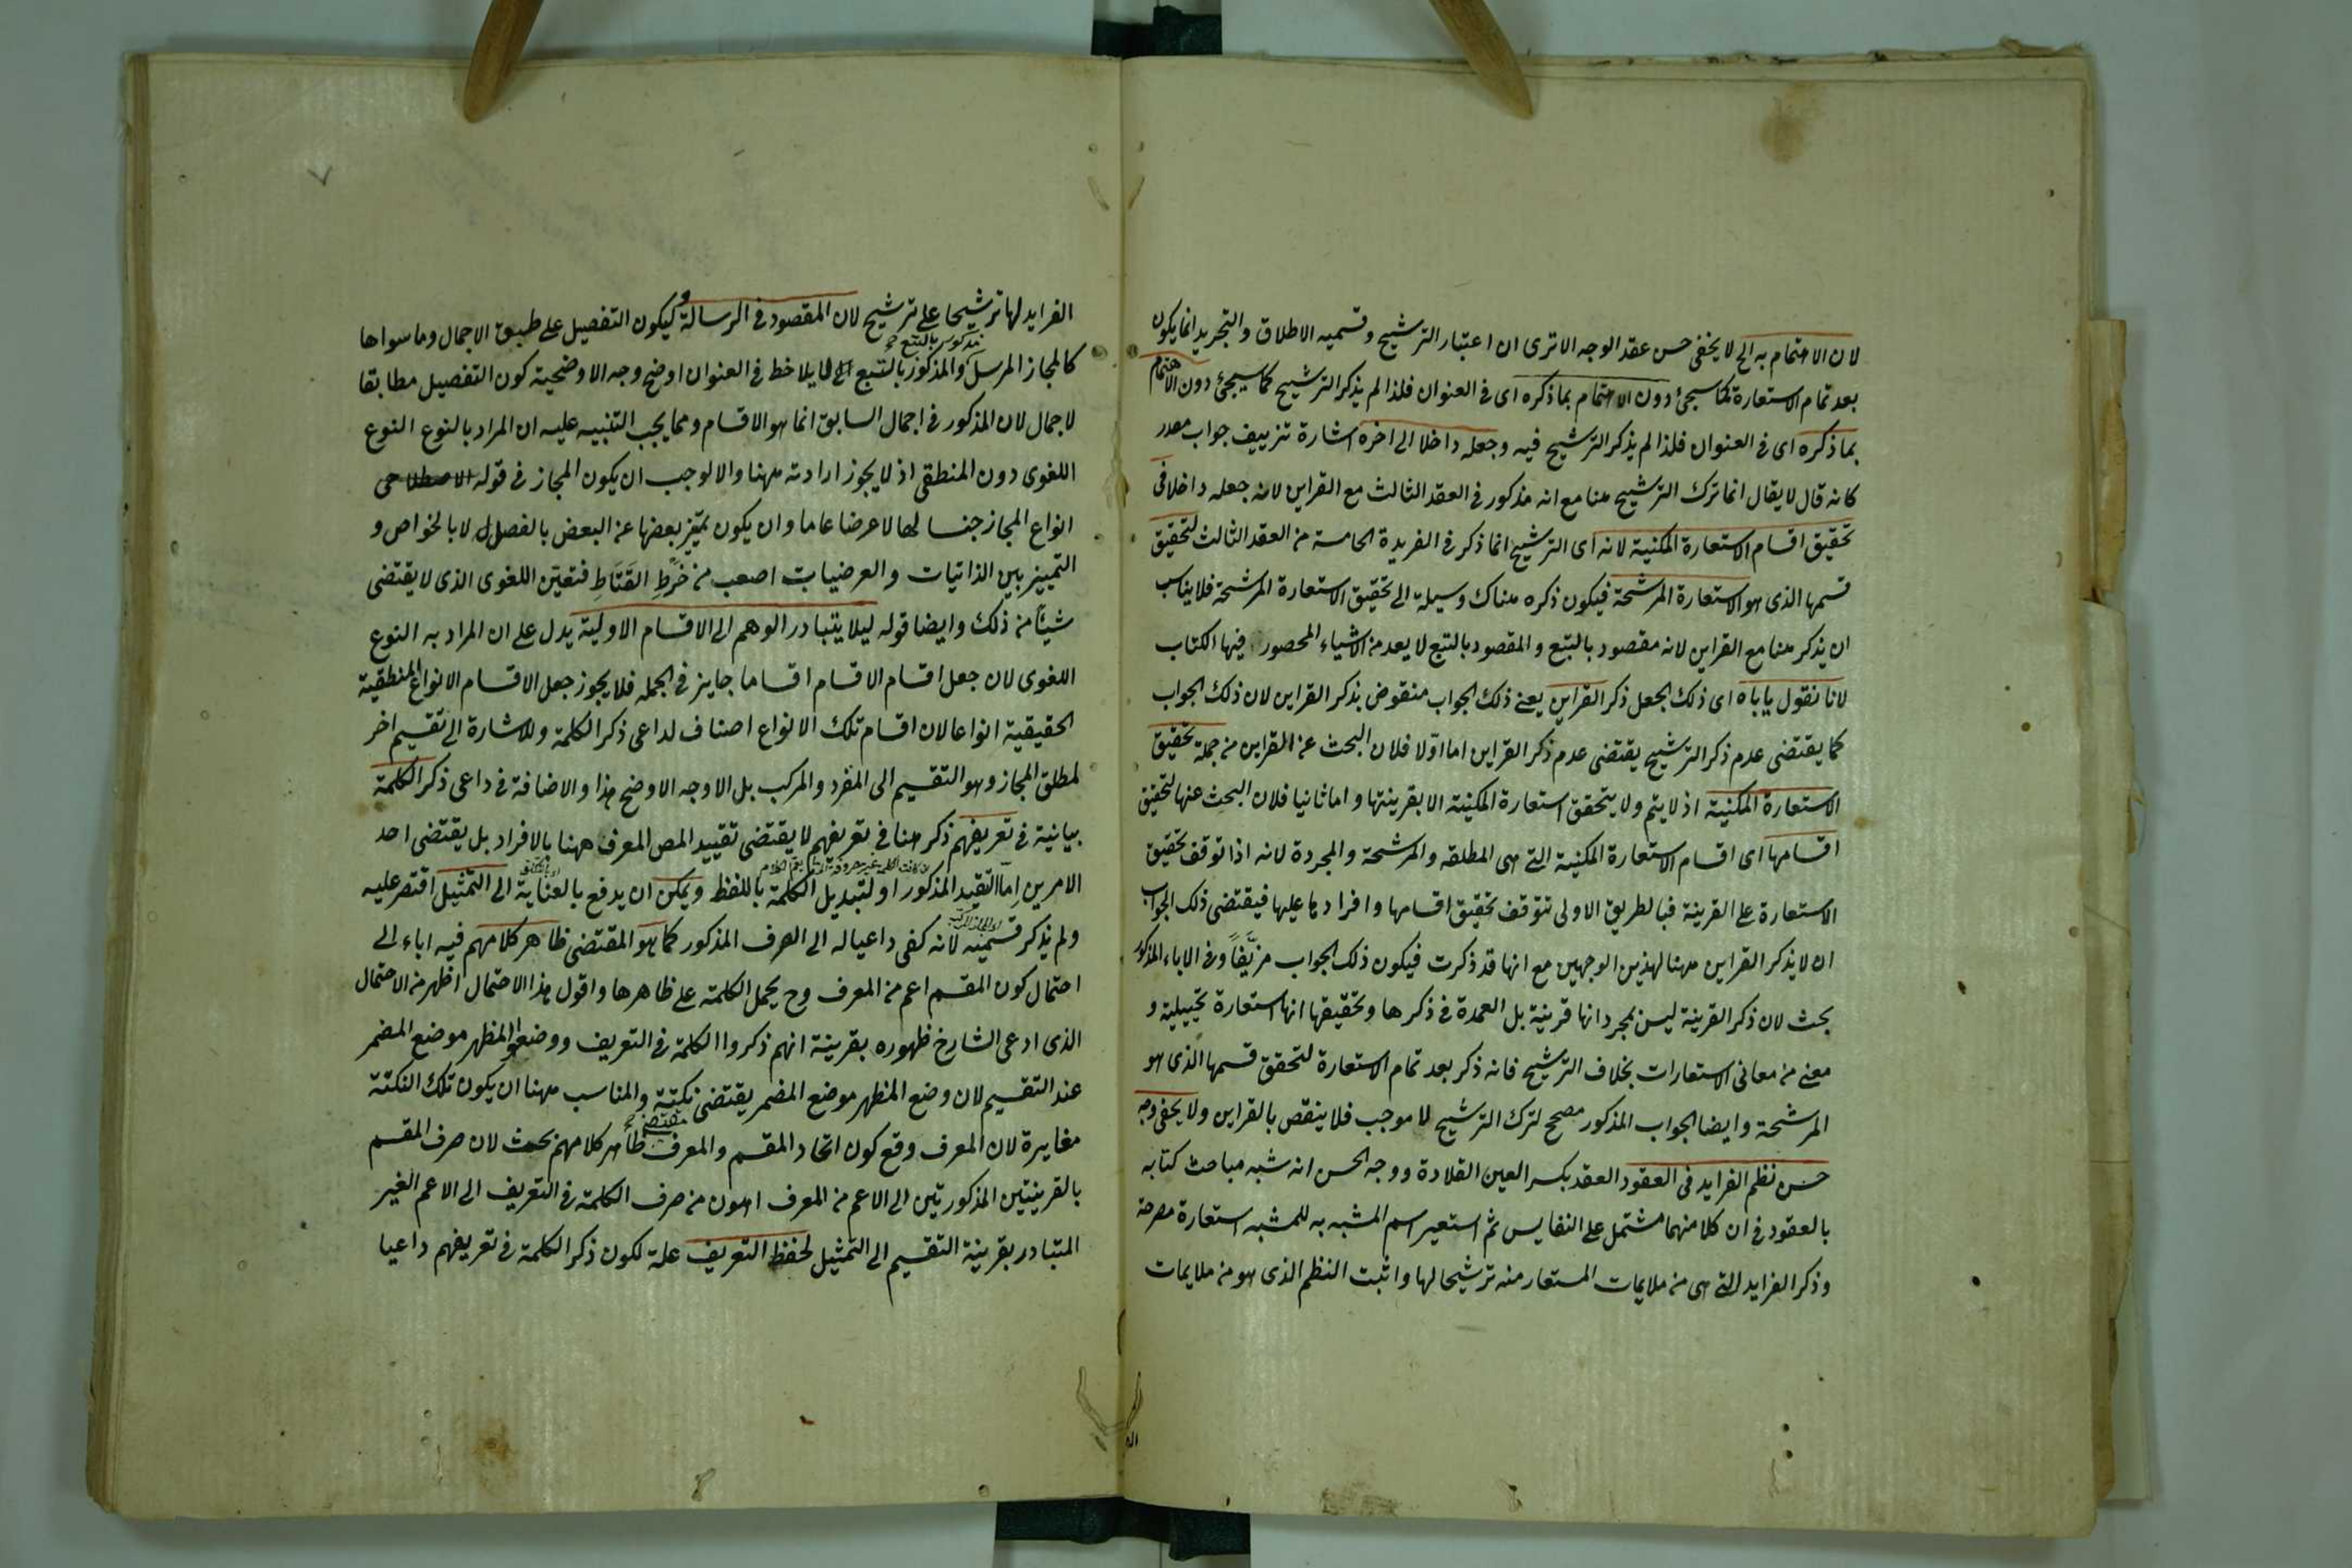 لان الاهتمام به الخ لا يخفى حسن عقد الوجه الاترى ان اعتبار الترشيح وقسميه الاطلاق والتجريد انما يكون
بعد تمام الاستعارة كما سيجئ دون الاهتمام بما ذكره اى فى العنوان فلذا لم يذكر الترشيح كما سيجئ دون الاهتمام
بما ذكره اى فى العنوان فلذا لم يذكر الترشيح فيه وجعله داخلا الى اخره اشارة تزييف جواب مصدر
كانه قال لا يقال انما ترك الترشيح هنا مع انه مذكور فى العقد الثالث مع القراين لانه جعله داخلا فى
تحقيق اقسام الاستعارة المكنية لانه اى الترشيح انما ذكر فى الفريدة الخامسة من العقد الثالث لتحقيق
قسمها الذى هو الاستعارة المرشحة فيكون ذكره هناك وسيلة الى تحقيق الاستعارة المرشحة فلا يناسب
ان يذكر هنا مع القراين لانه مقصود بالتبع والمقصود بالتبع لا يعد من الاشياء المحصور فيها الكتاب
لانا نقول ياباه اى ذلك الجعل ذكر القراين يعنى ذلك الجواب منقوض بذكر القراين لان ذلك الجواب
كما يقتضى عدم ذكر الترشيح يقتضى عدم ذكر القراين اما اولا فلان البحث عن القراين من جملة تحقيق
الاستعارة المكنية اذ لا يتم ولا يتحقق استعارة المكنية الا بقرينتها واما ثانيا فلان البحث عنها لتحقيق
اقسامها اى اقسام الاستعارة المكنية التى هى المطلقه والمرشحة والمجردة لانه اذا توقف تحقيق
الاستعارة على القرينة فبالطريق الاولى تتوقف تحقيق اقسامها وافرادها عليها فيقتضى ذلك الجواب
ان لا يذكر القراين ههنا لهذين الوجهين مع انها قد ذكرت فيكون ذلك الجواب مزيَّفًا وفى الاباء المذكور
بحث لان ذكر القرينة ليس لمجرد انها قرينة بل العمدة فى ذكرها وتحقيقها انها استعارة تخييلية و
معنى من معانى الاستعارات بخلاف الترشيح فانه ذكر بعد تمام الاستعارة لتحقق قسمها الذى هو
المرشحة وايضا الجواب المذكور مصحح لترك الترشيح لا موجب فلا ينقص بالقراين ولا يخفى وجه
حسن نظم الفرايد فى العقود العقد بكسر العين القلادة ووجه الحسن انه شبه مباحث كتابه
بالعقود فى ان كلا منهما مشتمل على النفايس ثم استعير اسم المشبه به للمشبه استعارة مصرحة
وذكر الفرايد التى هى من ملايمات المستعار منه ترشيحا لها واثبت النظم الذى هو من ملايمات
الفرايد لها ترشيحا على ترشيح لان المقصود فى الرسالة وليكون التفصيل على طبق الاجمال وما سواها
مذكور بالتبع
كالمجاز المرسل والمذكور بالتبع لا يلاحظ فى العنوان اوضح وجه الاوضحية كون التفصيل مطابقا
لاجمال لان المذكور فى اجمال السابق انما هو الاقسام ومما يجب التنبيه عليه ان المراد بالنوع النوع
اللغوى دون المنطقى اذ لا يجوز ارادته ههنا والا لوجب ان يكون المجاز فى قوله
انواع المجاز جنسا لها لا عرضا عاما وان يكون تميز بعضها عن البعض بالفصل لا بالخواص و
التمييز بين الذاتيات والعرضيات اصعب من خَرْطِ القَتَاطِ فتعين اللغوى الذى لا يقتضى
شيئا من ذلك وايضا قوله ليلا يتبادر الوهم الى الاقسام الاولية يدل على ان المراد به النوع
اللغوى لان جعل اقسام الاقسام اقساما جايز فى الجمله فلا يجوز جعل الاقسام الانواع المنطقية
الحقيقية انواعا لان اقسام تلك الانواع اصناف لداعى ذكر الكلمة وللاشارة الى تقسيم اخر
لمطلق المجاز وهو التقسيم الى المفرد والمركب بل الاوجه الاوضح هذا والاضافة فى داعى ذكر الكلمة
بيانية فى تعريفهم ذكر هنا فى تعريفهم لا يقتضى تقييد المص المعرف ههنا بالافراد بل يقتضى احد
الامرين اما التقيد المذكور او لتبديل الكلمة باللفظ ويمكن ان يدفع بالعناية الى التمثيل اقتصر عليه
ولم يذكر قسميه لانه كفى داعيا له الى الصرف المذكور كما هو المقتضى ظاهر كلامهم فيه اباء الى
احتمال كون المقسم اعم من المعرف وح يحمل الكلمة على ظاهرها واقول هذا الاحتمال اظهر من الاحتمال
الذى ادعى الشارح ظهوره بقرينة انهم ذكروا الكلمة فى التعريف ووضعوا المظهر موضع المضمر
عند التقسيم لان وضع المظهر موضع المضمر يقتضى نكتة والمناسب ههنا ان يكون تلك النكتة
مقتضى
مغايرة لان المعرف وقع كون اتحاد المقسم والمعرف ظاهر كلامهم بحث لان صرف المقسم
بالقرينتين المذكورتين الى الاعم من المعرف اهون من صرف الكلمة فى التعريف الى الاعم الغير
المتبادر بقرينة التقسيم الى التمثيل لحفظ التعريف علة لكون ذكر الكلمة فى تعريفهم داعيا